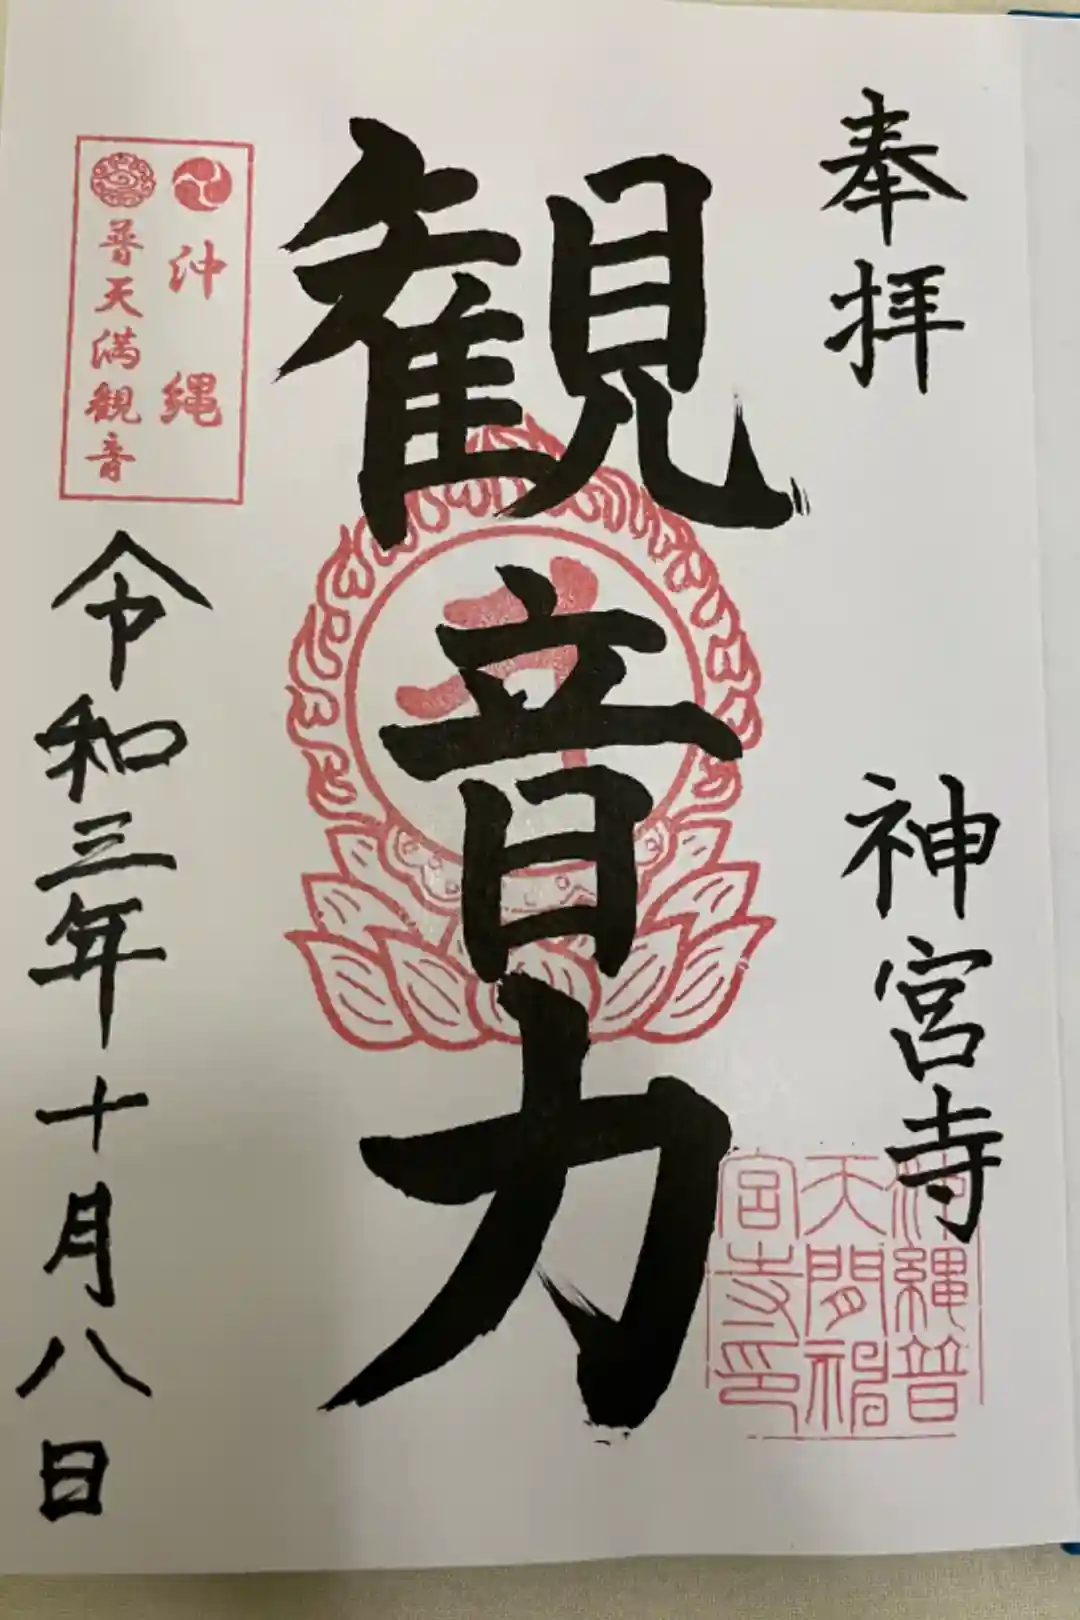 奉拝
神宮寺
観音力
沖縄
普天満観音
令和三年十月八日
沖縄普
天間神
宮寺印